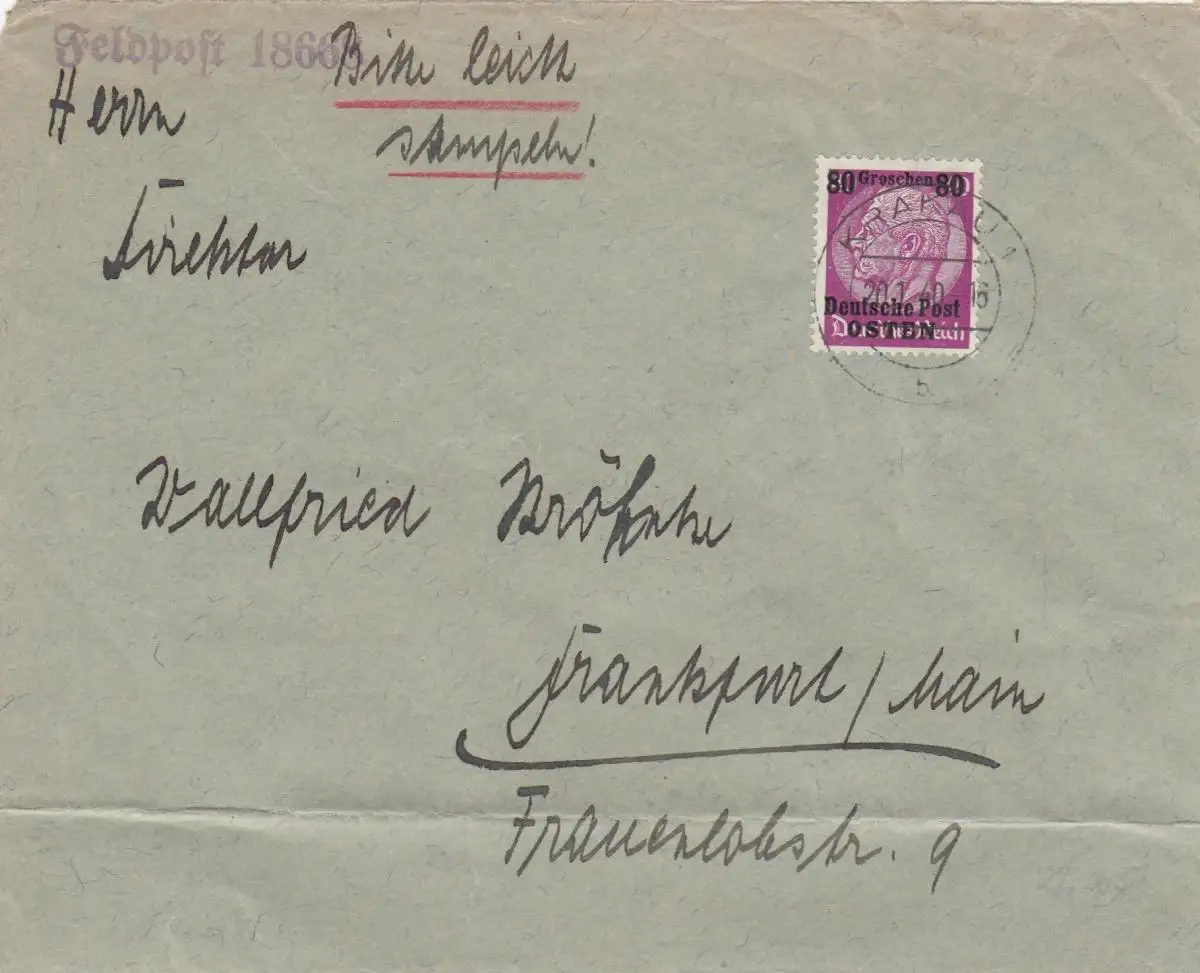 Feldpost 186
Bitte leicht
stempeln!
Herrn
Direktor
80 Groschen 80
KRAKAU 1
20.1.40. 16
Deutsche Post
OSTEN
Deutsches Reich
b
Wallfried
Frankfurt / Main
Frauenlobstr. 9